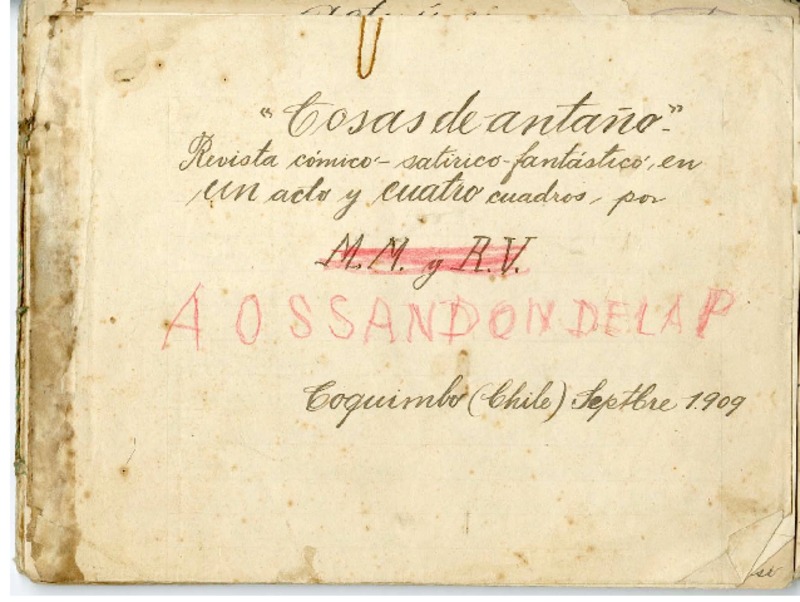 "Cosas de antaño"
Revista cómico-satirico-fantástico, en
un acto y cuatro cuadros, por
M.M. y R.V.
A OSSANDON DE LA P
Coquimbo (Chile) Septbre 1.909